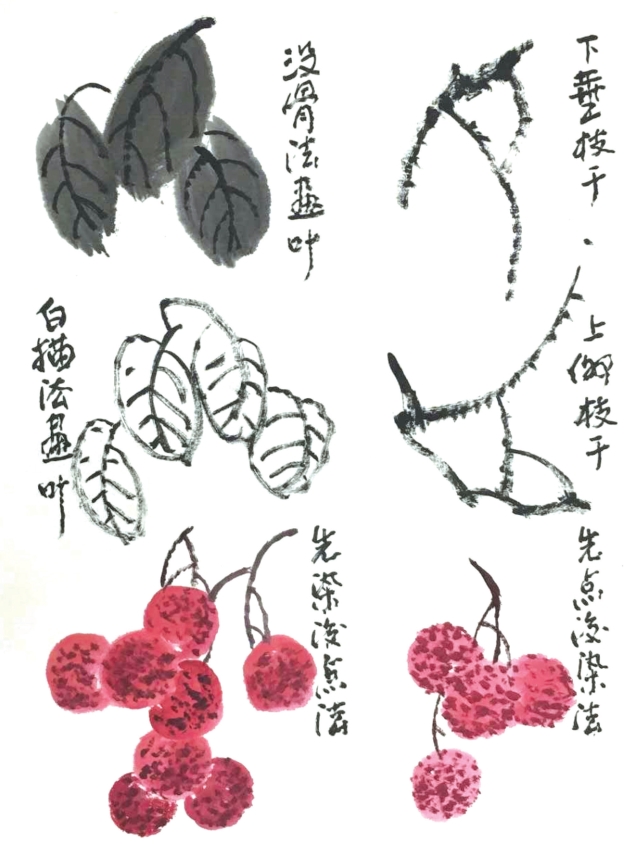 没骨法画叶
下垂枝干
白描法画叶
上仰枝干
先染后点法
先点后染法